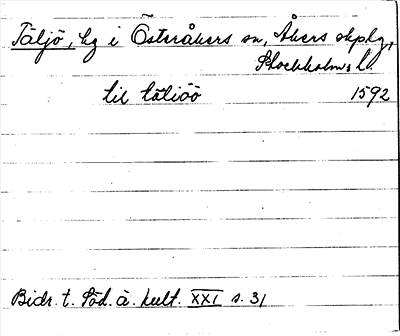 Täljö, by i Österåkers sn, Åkers skplg,
Stockholms l.
til täliöö 1592
Bidr. t. Söd. ä. kult. XXI s. 31